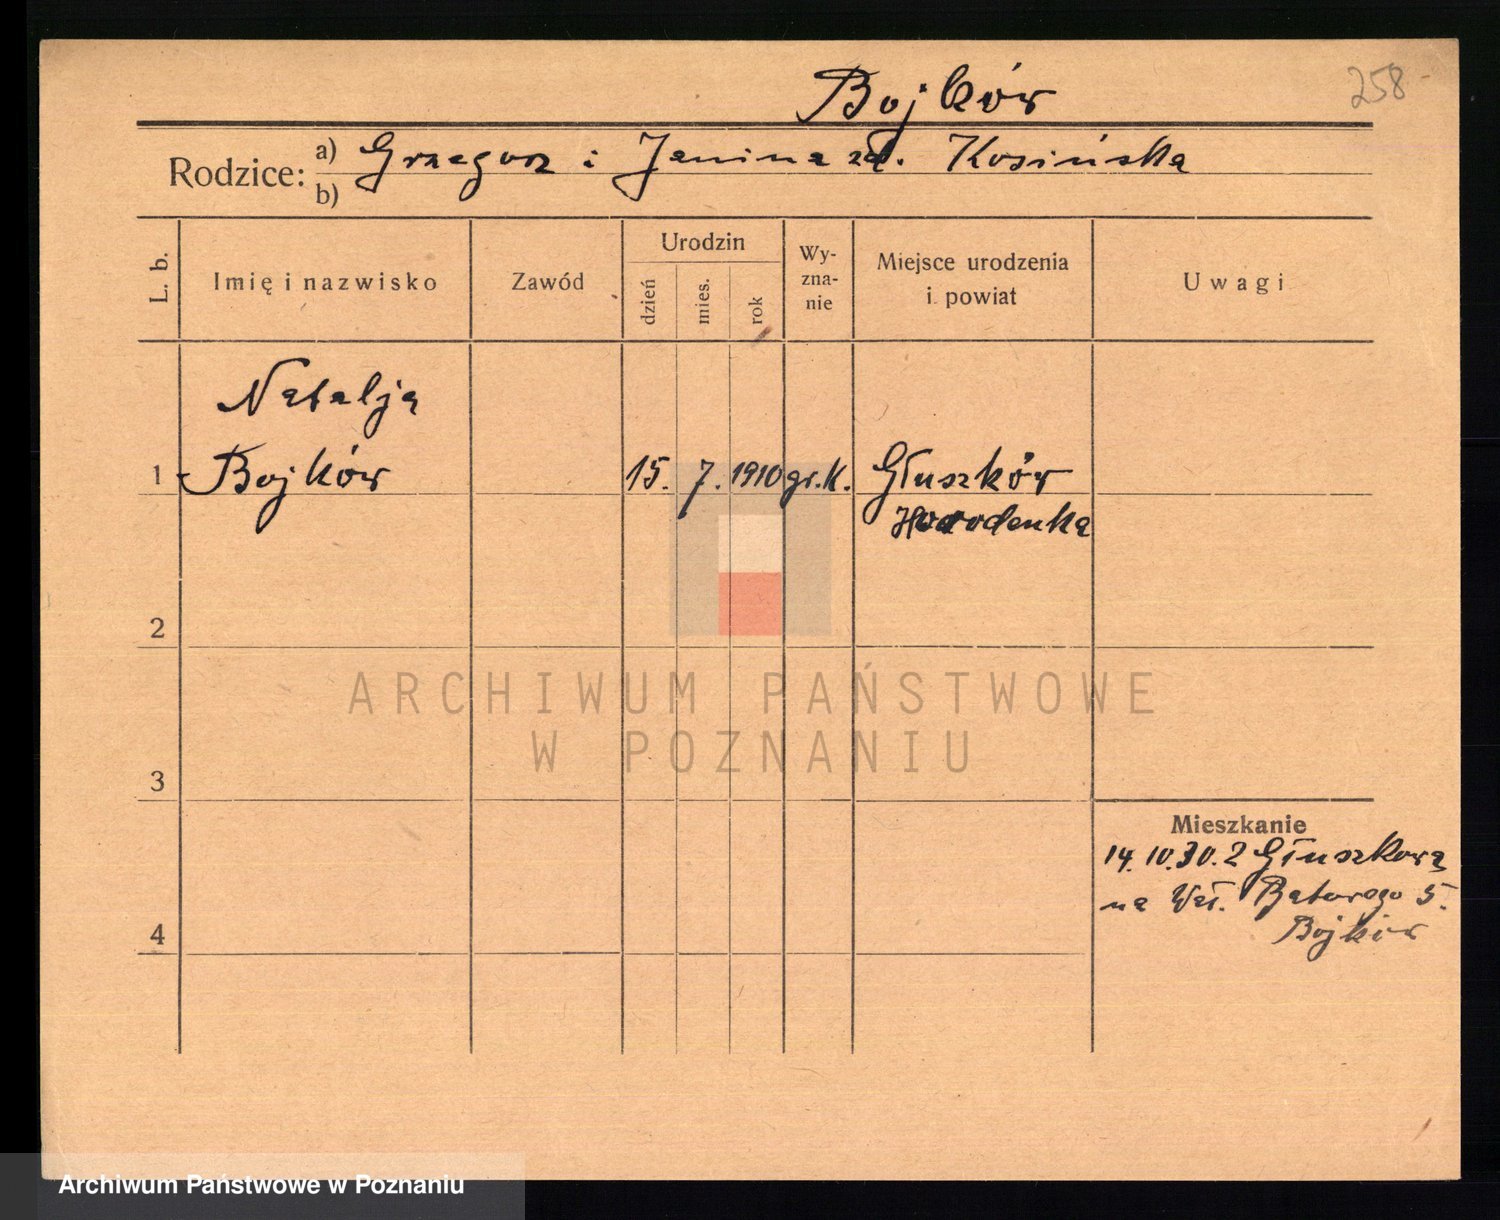 258
Bojków
Rodzice: a) Grzegorz i Janina zd. Kosińska
b)
L. b.
Imię i nazwisko
Zawód
Urodzin
dzień
mies.
rok
Wy-
zna-
nie
Miejsce urodzenia
i powiat
Uwagi
Natalja
1 Bojków 15. 7. 1910 gr.k. Głuszków
Horodenka
2
3
4
Mieszkanie
14.10.30. z Głuszkowa
na Wał. Batorego 5.
Bojków
ARCHIWUM PAŃSTWOWE
W POZNANIU
Archiwum Państwowe w Poznaniu